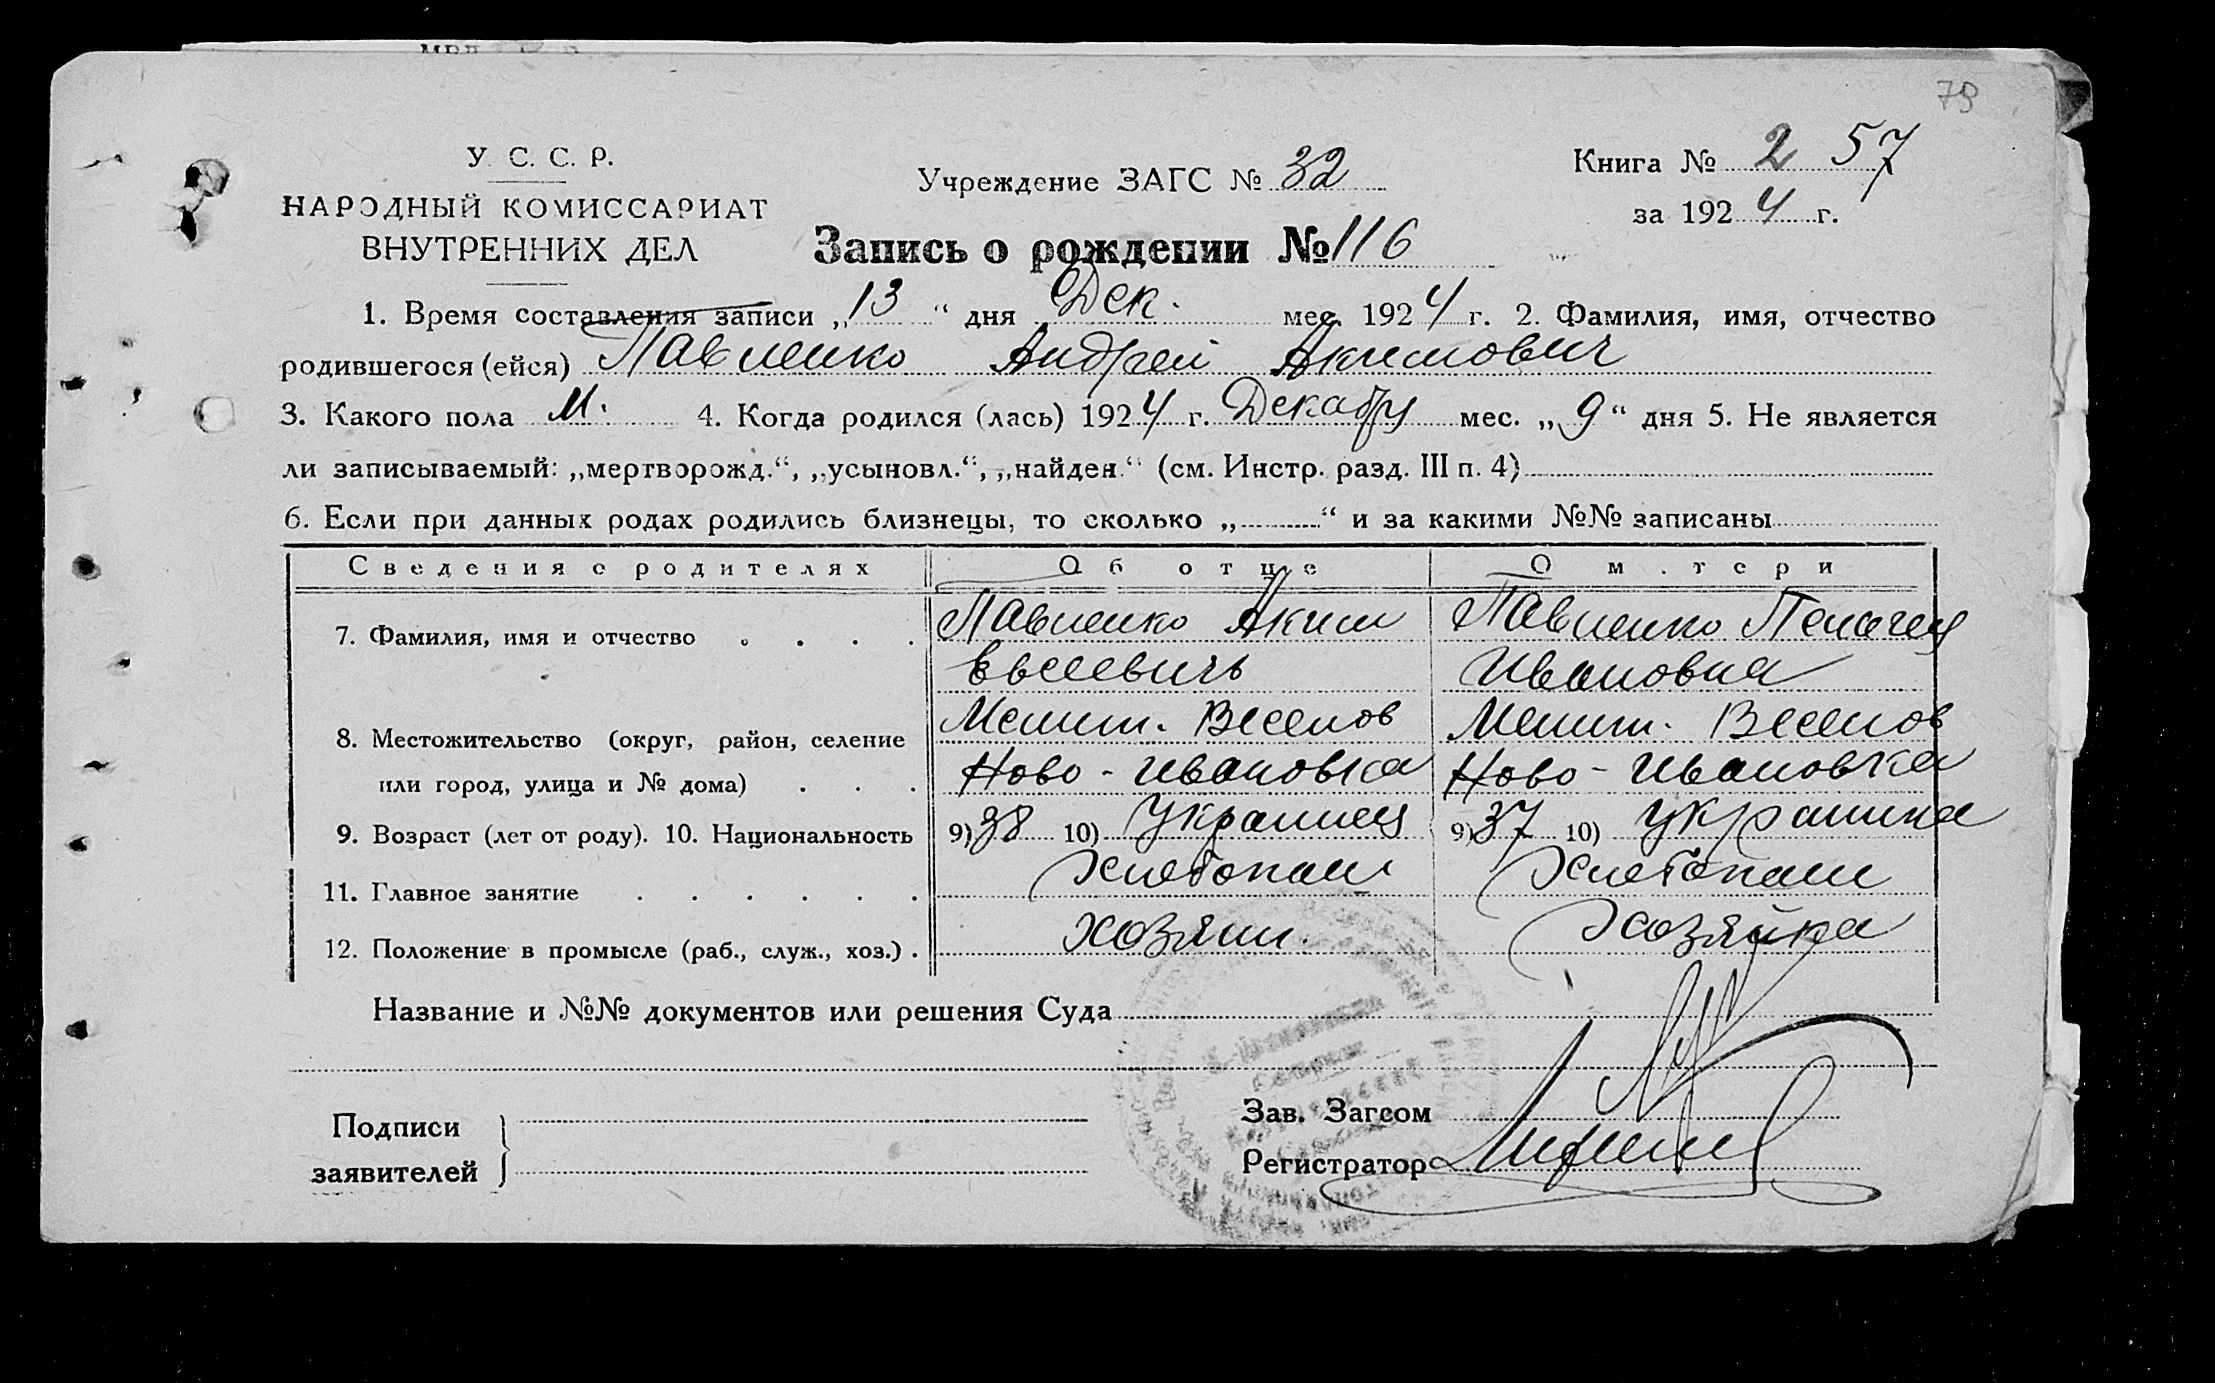 79
У. С. С. Р.
НАРОДНЫЙ КОМИССАРИАТ
ВНУТРЕННИХ ДЕЛ
Учреждение ЗАГС № 32
Книга № 2 57
за 1924 г.
Запись о рождении № 116
1. Время составления записи „13“ дня Дек. мес. 1924 г. 2. Фамилия, имя, отчество
родившегося (ейся) Павленко Андрей Акимович
3. Какого пола М. 4. Когда родился (лась) 1924 г. Декабру мес. „9“ дня 5. Не является
ли записываемый: „мертворожд.“, „усыновл.“, „найден.“ (см. Инстр. разд. III п. 4)
6. Если при данных родах родились близнецы, то сколько „ “ и за какими №№ записаны
Сведения о родителях Об отце О м тери
7. Фамилия, имя и отчество . . . . Павленко Аким Павленко Пелагея
Евсеевичъ Ивановна
8. Местожительство (округ, район, селение Мелит. Веселов Мелит. Веселов
или город, улица и № дома) . . . Ново-Ивановка Ново-Ивановка
9. Возраст (лет от роду). 10. Национальность 9) 38 10) Украинец 9) 37 10) Украинка
11. Главное занятие . . . . . . Хлебопаш Хлебопаш
12. Положение в промысле (раб., служ., хоз.) . хозяин. Хозяйка
Название и №№ документов или решения Суда
Подписи
заявителей
Зав. Загсом
Регистратор